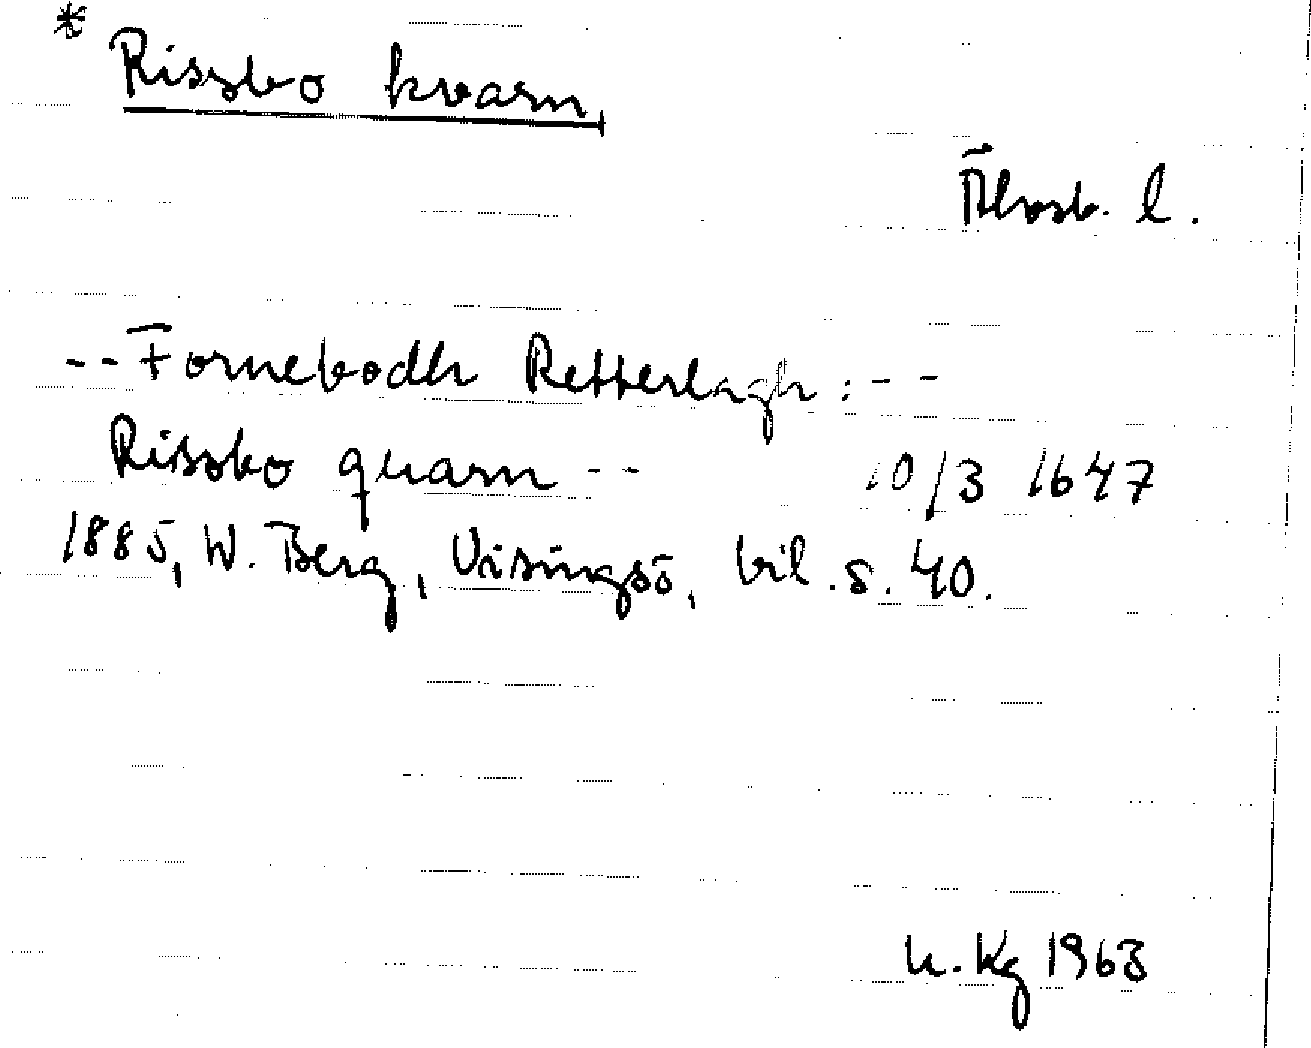 * Riszbo kvarn
Älvsb. l.
-- Fornebodh Retterlagh: --
Riszbo quarn -- 10/3 1647
1885, W. Berg, Visingsö, bil. s. 40.
K. Kg 1963